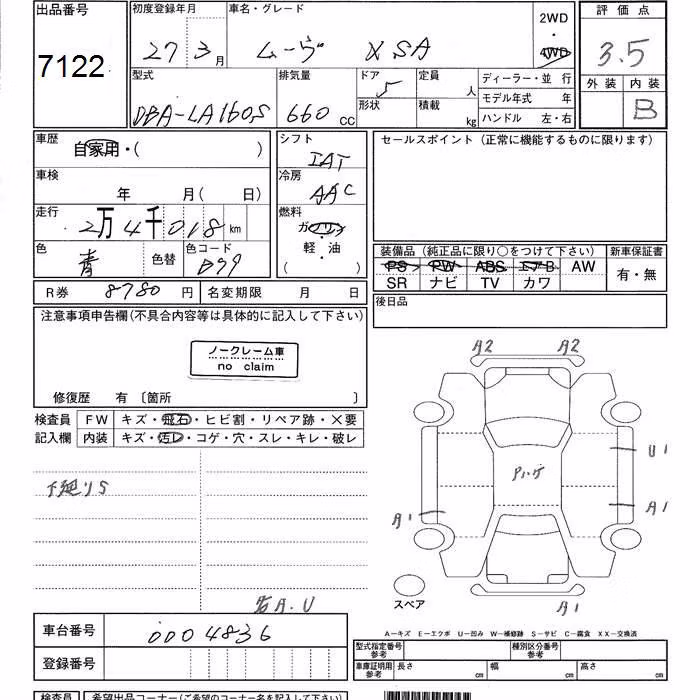 出品番号
7122
初度登録年月
27年3月
車名・グレード
ムーヴ XSA
2WD
・
4WD
評価点
3.5
外装 内装
B
型式
DBA-LA160S
排気量
660 CC
ドア
5
形状
定員
人
積載
kg
ディーラー・並行
モデル年式 年
ハンドル 左・右
車歴
自家用・( )
車検
年 月( 日)
走行
2万4千018km
色
青
色替
色コード
B79
シフト
IAT
冷房
AAC
燃料
ガソリン
・
軽油
・
( )
セールスポイント(正常に機能するものに限ります)
装備品(純正品に限り○をつけて下さい)
PS PW ABS エアB AW
SR ナビ TV カワ
新車保証書
有・無
後日品
R券 8780円
名変期限 月 日
注意事項申告欄(不具合内容等は具体的に記入して下さい)
ノークレーム車
no claim
修復歴 有〔箇所 〕
検査員
記入欄
FW キズ・飛石・ヒビ割・リペア跡・×要
内装 キズ・汚レ・コゲ・穴・スレ・キレ・破レ
下廻りS
若A.U
A2 A2
Pハゲ
U1
A1
A1
A1
スペア
A−キズ E−エクボ U−凹み W−補修跡 S−サビ C−腐食 XX−交換済
車台番号
0004836
登録番号
型式指定番号
参考
種別区分番号
参考
車庫証明用
参考
長さ cm 幅 cm 高さ cm
検査員
希望出品コーナー(ご希望のコーナー名を記入して下さい)